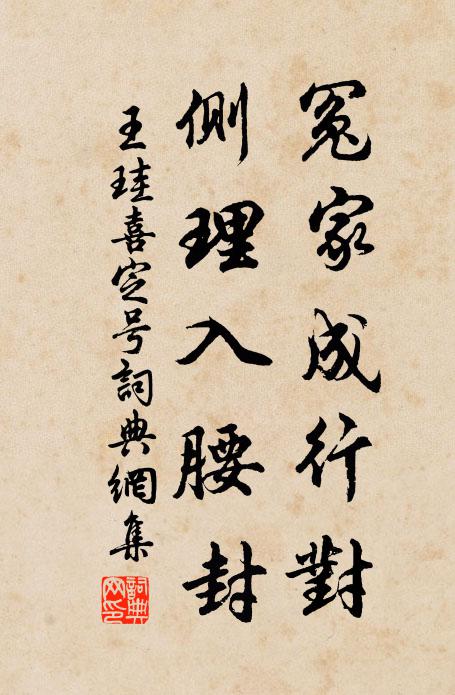 冤家成行對
側理入腰封
王珪喜定号詞典網集
詞典
网印